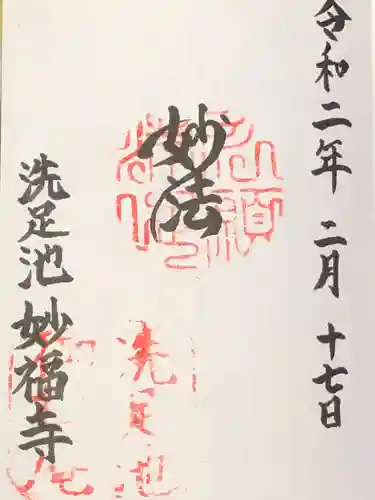 令和二年 二月 十七日
妙法
洗足池
洗足池 妙福寺